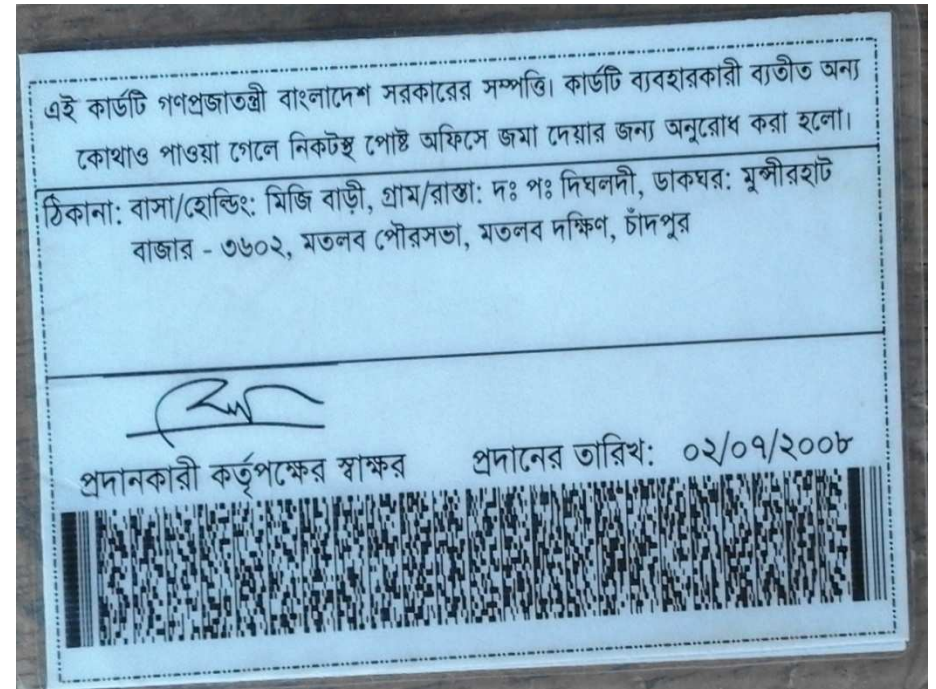 এই কার্ডটি গণপ্রজাতন্ত্রী বাংলাদেশ সরকারের সম্পত্তি। কার্ডটি ব্যবহারকারী ব্যতীত অন্য
কোথাও পাওয়া গেলে নিকটস্থ পোষ্ট অফিসে জমা দেয়ার জন্য অনুরোধ করা হলো।
ঠিকানা: বাসা/হোল্ডিং: মিজি বাড়ী, গ্রাম/রাস্তা: দঃ পঃ দিঘলদী, ডাকঘর: মুন্সীরহাট
বাজার - ৩৬০২, মতলব পৌরসভা, মতলব দক্ষিণ, চাঁদপুর
প্রদানকারী কর্তৃপক্ষের স্বাক্ষর প্রদানের তারিখ: ০২/০৭/২০০৮